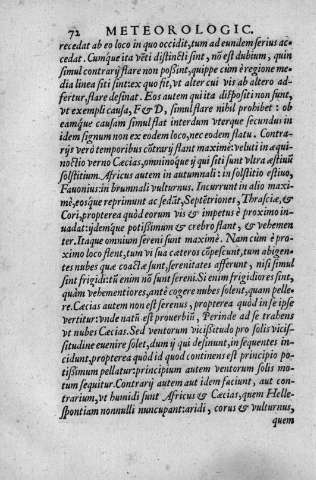 72 METEOROLOGIC.
recedat ab eo loco in quo occidit, tum ad eundem serius ac-
cedat. Cumque ita vēti distincti sint, nō est dubium, quin
simul contrarij flare non possint, quippe cùm è regione me-
dia linea siti sint: ex quo fit, vt alter cui vis ab altero ad-
fertur, flare desinat. Eos autem qui ita dispositi non sunt,
vt exempli causa, F & D, simul flare nihil prohibet: ob
eamque causam simul flat interdum vterque secundus in
idem signum non ex eodem loco, nec eodem flatu. Contra-
rijs verò temporibus cōtrarij flant maximè: velut in æqui-
noctio verno Cæcias, omninoque ij qui siti sunt vltra æstiuū
solstitium. Africus autem in autumnali: in solstitio estiuo,
Fauonius: in brumali vulturnus. Incurrunt in alio maxi-
mè, eosque reprimunt ac sedāt, Septētriones, Thrasciæ, &
Cori, propterea quòd eorum vis & impetus è proximo in-
uadat: ijdemque potissimum & crebro flant, & vehemen
ter. Itaque omnium sereni sunt maximè. Nam cùm è pro-
ximo loco flent, tum vi sua cæteros cōpescunt, tum abigen-
tes nubes quæ coactæ sunt, serenitates afferunt, nisi simul
sint frigidi: tū enim nō sunt sereni. Si enim frigidiores sint,
quàm vehementiores, antè cogere nubes solent, quàm pelle-
re. Cæcias autem non est serenus, propterea quòd in se ipse
vertitur: vnde natū est prouerbiū, Perinde ad se trabens
vt nubes Cæcias. Sed ventorum vicissitudo pro solis vicis-
situdine euenire solet, dum ij qui desinunt, in sequentes in-
cidunt, propterea quòd id quod continens est principio po-
tissimum pellatur: principium autem ventorum solis mo-
tum sequitur. Contrarij autem aut idem faciunt, aut con-
trarium, vt humidi sunt Africus & Cæcias, quem Helle-
spontiam nonnulli nuncupant: aridi, corus & vulturnus,
quem